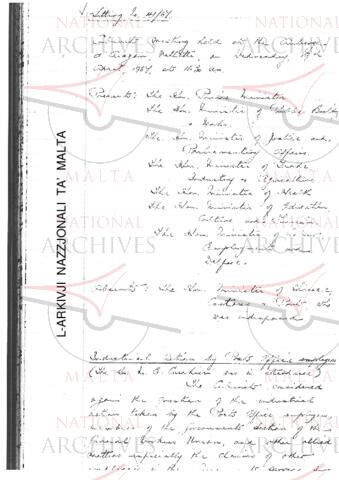 Sitting No. 41/67
Cabinet Meeting held at the Auberge
d'Aragon, Valletta, on Wednesday,
April, 1967, at 11.30 am
Present: The Hon. Prime Minister
The Hon. Minister of Public Building
& Works
The Hon. Minister of Justice and
Parliamentary Affairs
The Hon. Minister of Trade
Industry & Agriculture
The Hon. Minister of Health
The Hon. Minister of Education,
Culture and Tourism
The Hon. Minister of
Employment and
Welfare.
Absent: The Hon. Minister of Finance,
Customs & Ports who
was indisposed
Industrial Action by Posts Office employees
(The Hon. was in attendance)
The Cabinet considered
again the question of the industrial
action taken by the Posts Office employees,
members of the Government Section of the
General Workers Union, and other allied
matters especially the claims of other
employees in the
L-ARKIVJI NAZZJONALI TA' MALTA
NATIONAL
ARCHIVES
MALTA